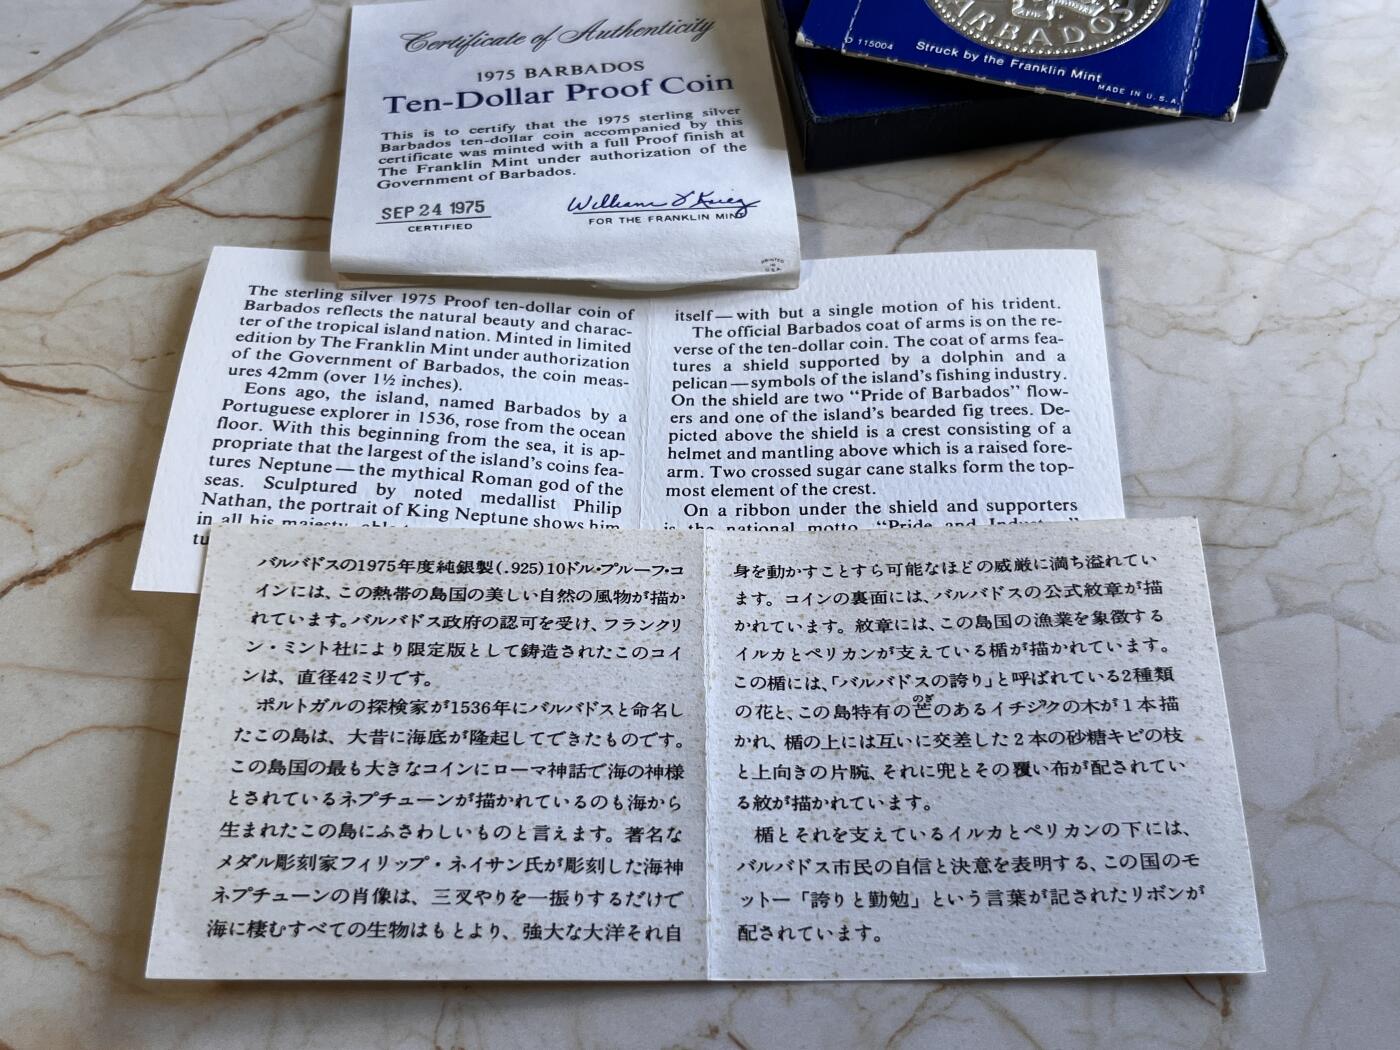 Certificate of Authenticity
1975 BARBADOS
Ten-Dollar Proof Coin
This is to certify that the 1975 sterling silver
Barbados ten-dollar coin accompanied by this
certificate was minted with a full Proof finish at
The Franklin Mint under authorization of the
Government of Barbados.
SEP 24 1975
CERTIFIED
FOR THE FRANKLIN MINT
PRINTED
IN
U.S.A.
BARBADOS
D 115004
Struck by the Franklin Mint
MADE IN U.S.A.
The sterling silver 1975 Proof ten-dollar coin of
Barbados reflects the natural beauty and charac-
ter of the tropical island nation. Minted in limited
edition by The Franklin Mint under authorization
of the Government of Barbados, the coin meas-
ures 42mm (over 1½ inches).
Eons ago, the island, named Barbados by a
Portuguese explorer in 1536, rose from the ocean
floor. With this beginning from the sea, it is ap-
propriate that the largest of the island's coins fea-
tures Neptune—the mythical Roman god of the
seas. Sculptured by noted medallist Philip
Nathan, the portrait of King Neptune shows him
in all his majesty,
itself—with but a single motion of his trident.
The official Barbados coat of arms is on the re-
verse of the ten-dollar coin. The coat of arms fea-
tures a shield supported by a dolphin and a
pelican—symbols of the island's fishing industry.
On the shield are two “Pride of Barbados” flow-
ers and one of the island's bearded fig trees. De-
picted above the shield is a crest consisting of a
helmet and mantling above which is a raised fore-
arm. Two crossed sugar cane stalks form the top-
most element of the crest.
On a ribbon under the shield and supporters
is the national motto, “Pride and
バルバドスの1975年度純銀製(.925)10ドル・プルーフ・コ
インには、この熱帯の島国の美しい自然の風物が描か
れています。バルバドス政府の認可を受け、フランクリ
ン・ミント社により限定版として鋳造されたこのコイ
ンは、直径42ミリです。
ポルトガルの探検家が1536年にバルバドスと命名し
たこの島は、大昔に海底が隆起してできたものです。
この島国の最も大きなコインにローマ神話で海の神様
とされているネプチューンが描かれているのも海から
生まれたこの島にふさわしいものと言えます。著名な
メダル彫刻家フィリップ・ネイサン氏が彫刻した海神
ネプチューンの肖像は、三叉やりを一振りするだけで
海に棲むすべての生物はもとより、強大な大洋それ自
身を動かすことすら可能なほどの威厳に満ち溢れてい
ます。コインの裏面には、バルバドスの公式紋章が描
かれています。紋章には、この島国の漁業を象徴する
イルカとペリカンが支えている楯が描かれています。
この楯には、「バルバドスの誇り」と呼ばれている2種類
の花と、この島特有の芒のあるイチジクの木が1本描
のぎ
かれ、楯の上には互いに交差した2本の砂糖キビの枝
と上向きの片腕、それに兜とその覆い布が配されてい
る紋が描かれています。
楯とそれを支えているイルカとペリカンの下には、
バルバドス市民の自信と決意を表明する、この国のモ
ットー「誇りと勤勉」という言葉が記されたリボンが
配されています。